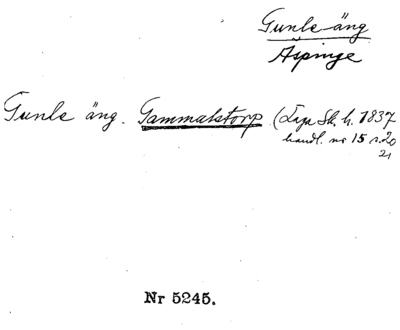 Gunle äng
Äspinge
Gunle äng. Gammalstorp (Laga Sk. h. 1837
handl. nr 15 s. 20
21
Nr 5245.